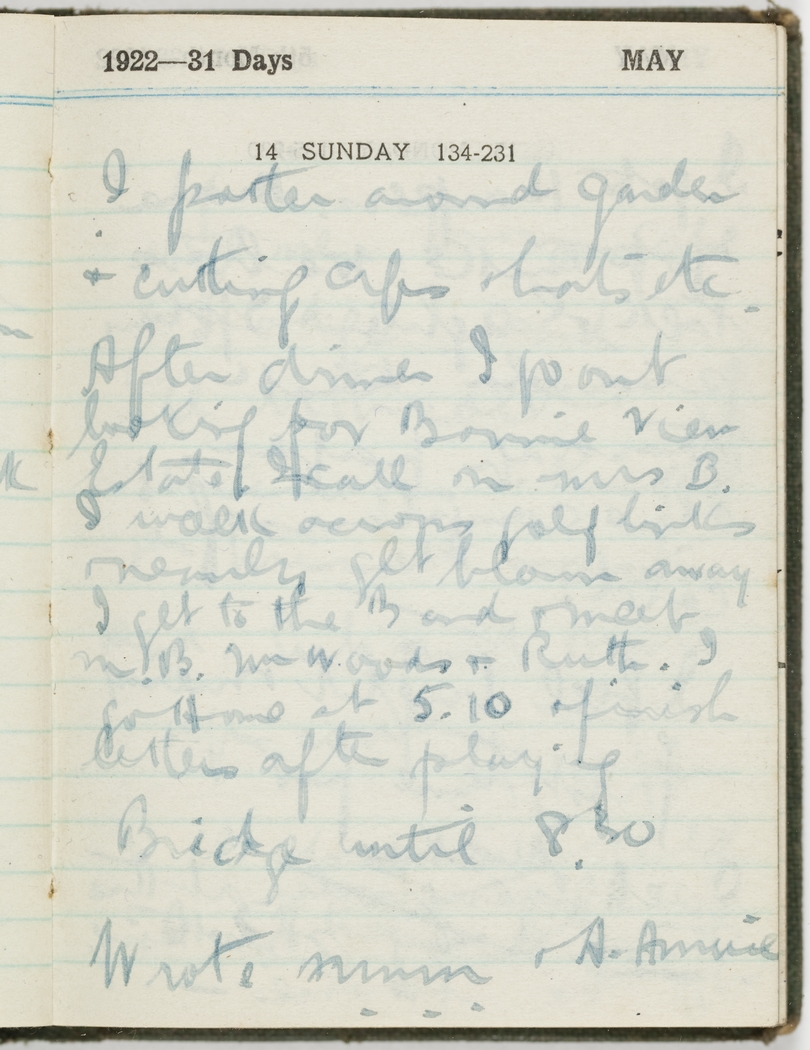 1922—31 Days MAY
14 SUNDAY 134-231
I potter around garden
+ cutting chips shorts etc.
After dinner I go out
looking for Bonnie View
Estate. I call on Mrs B.
I walk across golf links
nearly get blown away
I get to the Band + meet
M.B. Mr Woods + Ruth. I
go Home at 5.10 + finish
letters after playing
Bridge until 8.30
Wrote mum + A. Annie